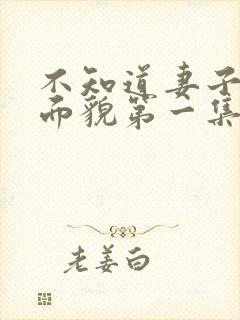 不知道妻子
而貌第一集
老姜白